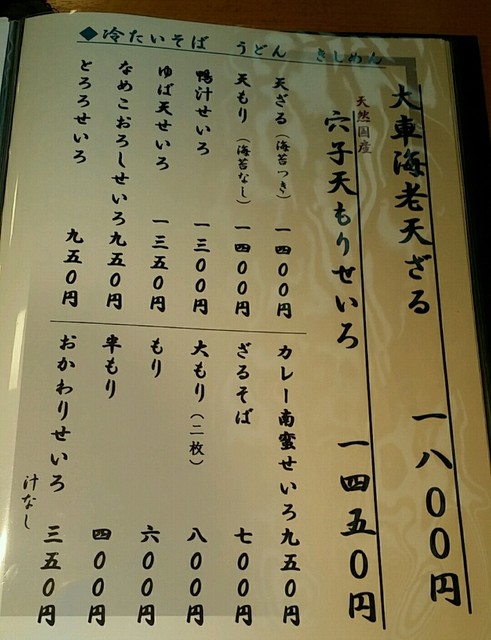 ◆冷たいそば　うどん　きしめん
大車海老天ざる　一八〇〇円
天然国産
穴子天もりせいろ　一四五〇円
天ざる（海苔つき）一四〇〇円
天もり（海苔なし）一四〇〇円
鴨汁せいろ　一三〇〇円
ゆば天せいろ　一三五〇円
なめこおろしせいろ九五〇円
とろろせいろ　九五〇円
カレー南蛮せいろ九五〇円
ざるそば　七〇〇円
大もり（二枚）　八〇〇円
もり　六〇〇円
半もり　四〇〇円
おかわりせいろ　三五〇円
汁なし